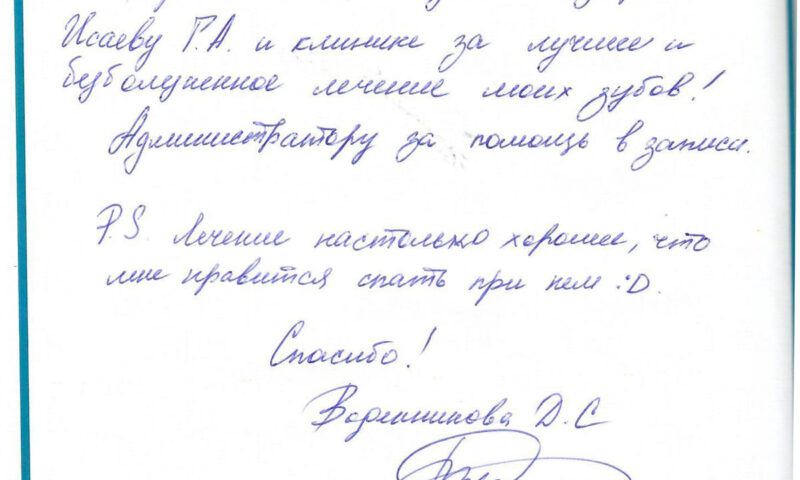 Исаеву Г.А. и клинике за лучшее и
безболезненное лечение моих зубов!
Администратору за помощь в записи.
P.S. Лечение настолько хорошее, что
мне нравится спать при нем :D.
Спасибо!
Д.С